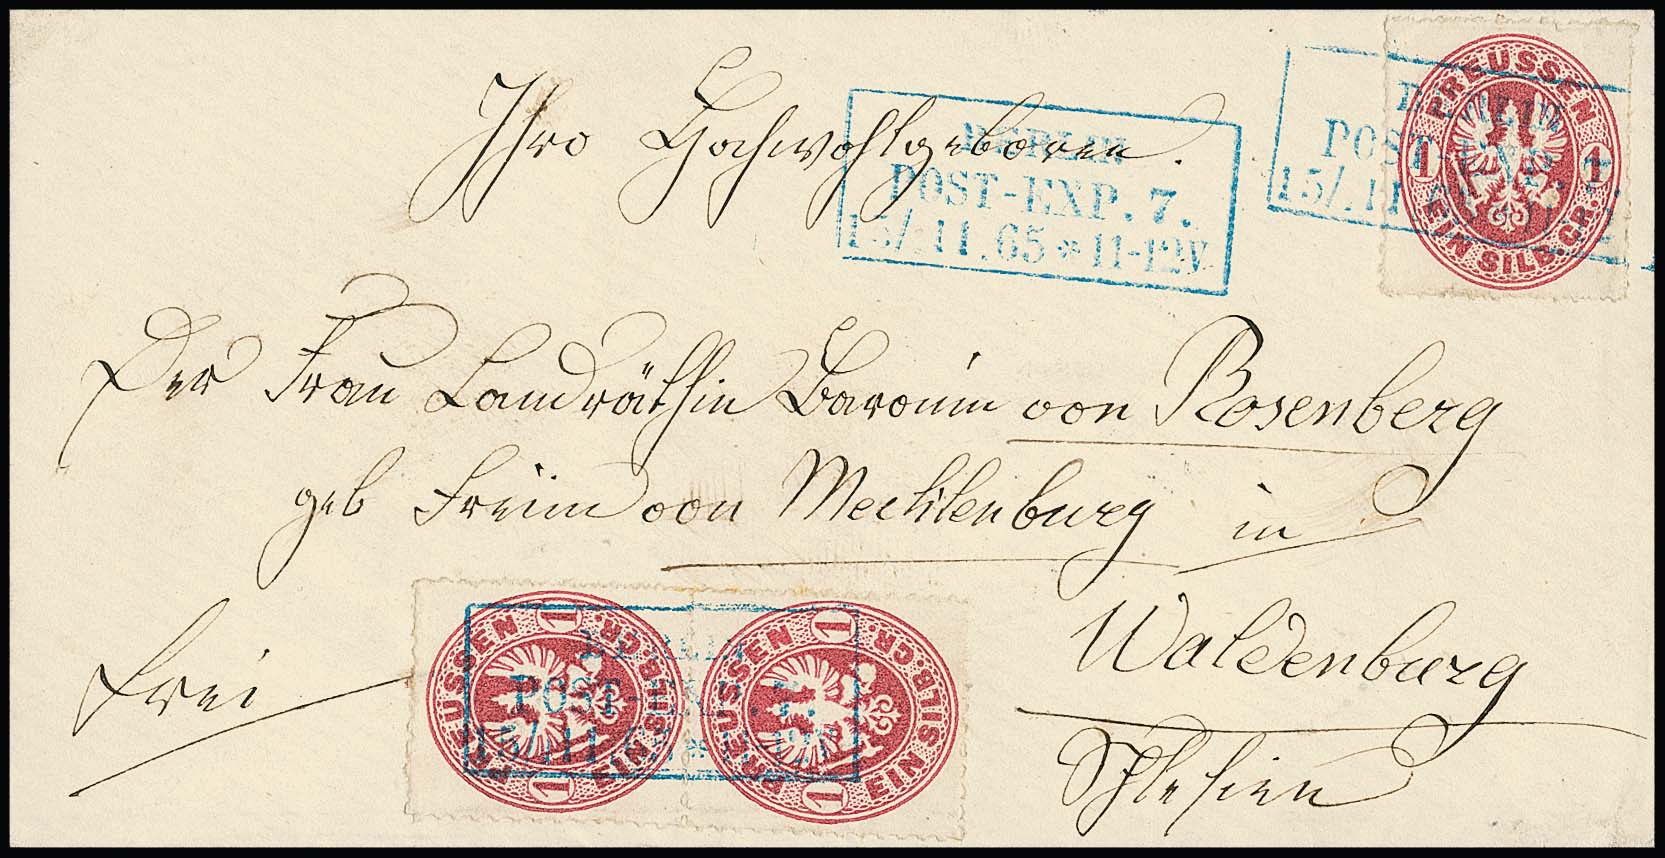 Ihro Hochwohlgeboren.
BERLIN
POST-EXP. 7.
15/.11.65*11-12V
BERLIN
POST-EXP. 7.
15/.11
PREUSSEN
1 1
EIN SILB.GR.
Der Frau Landräthin Baronin von Rosenberg
geb Freiin von Mecklenburg in
Waldenburg
Schlesien
frei
PREUSSEN 1 EIN SILB.GR. 1
PREUSSEN 1 EIN SILB.GR. 1
BERLIN
POST-EXP. 7.
15/.11.65*